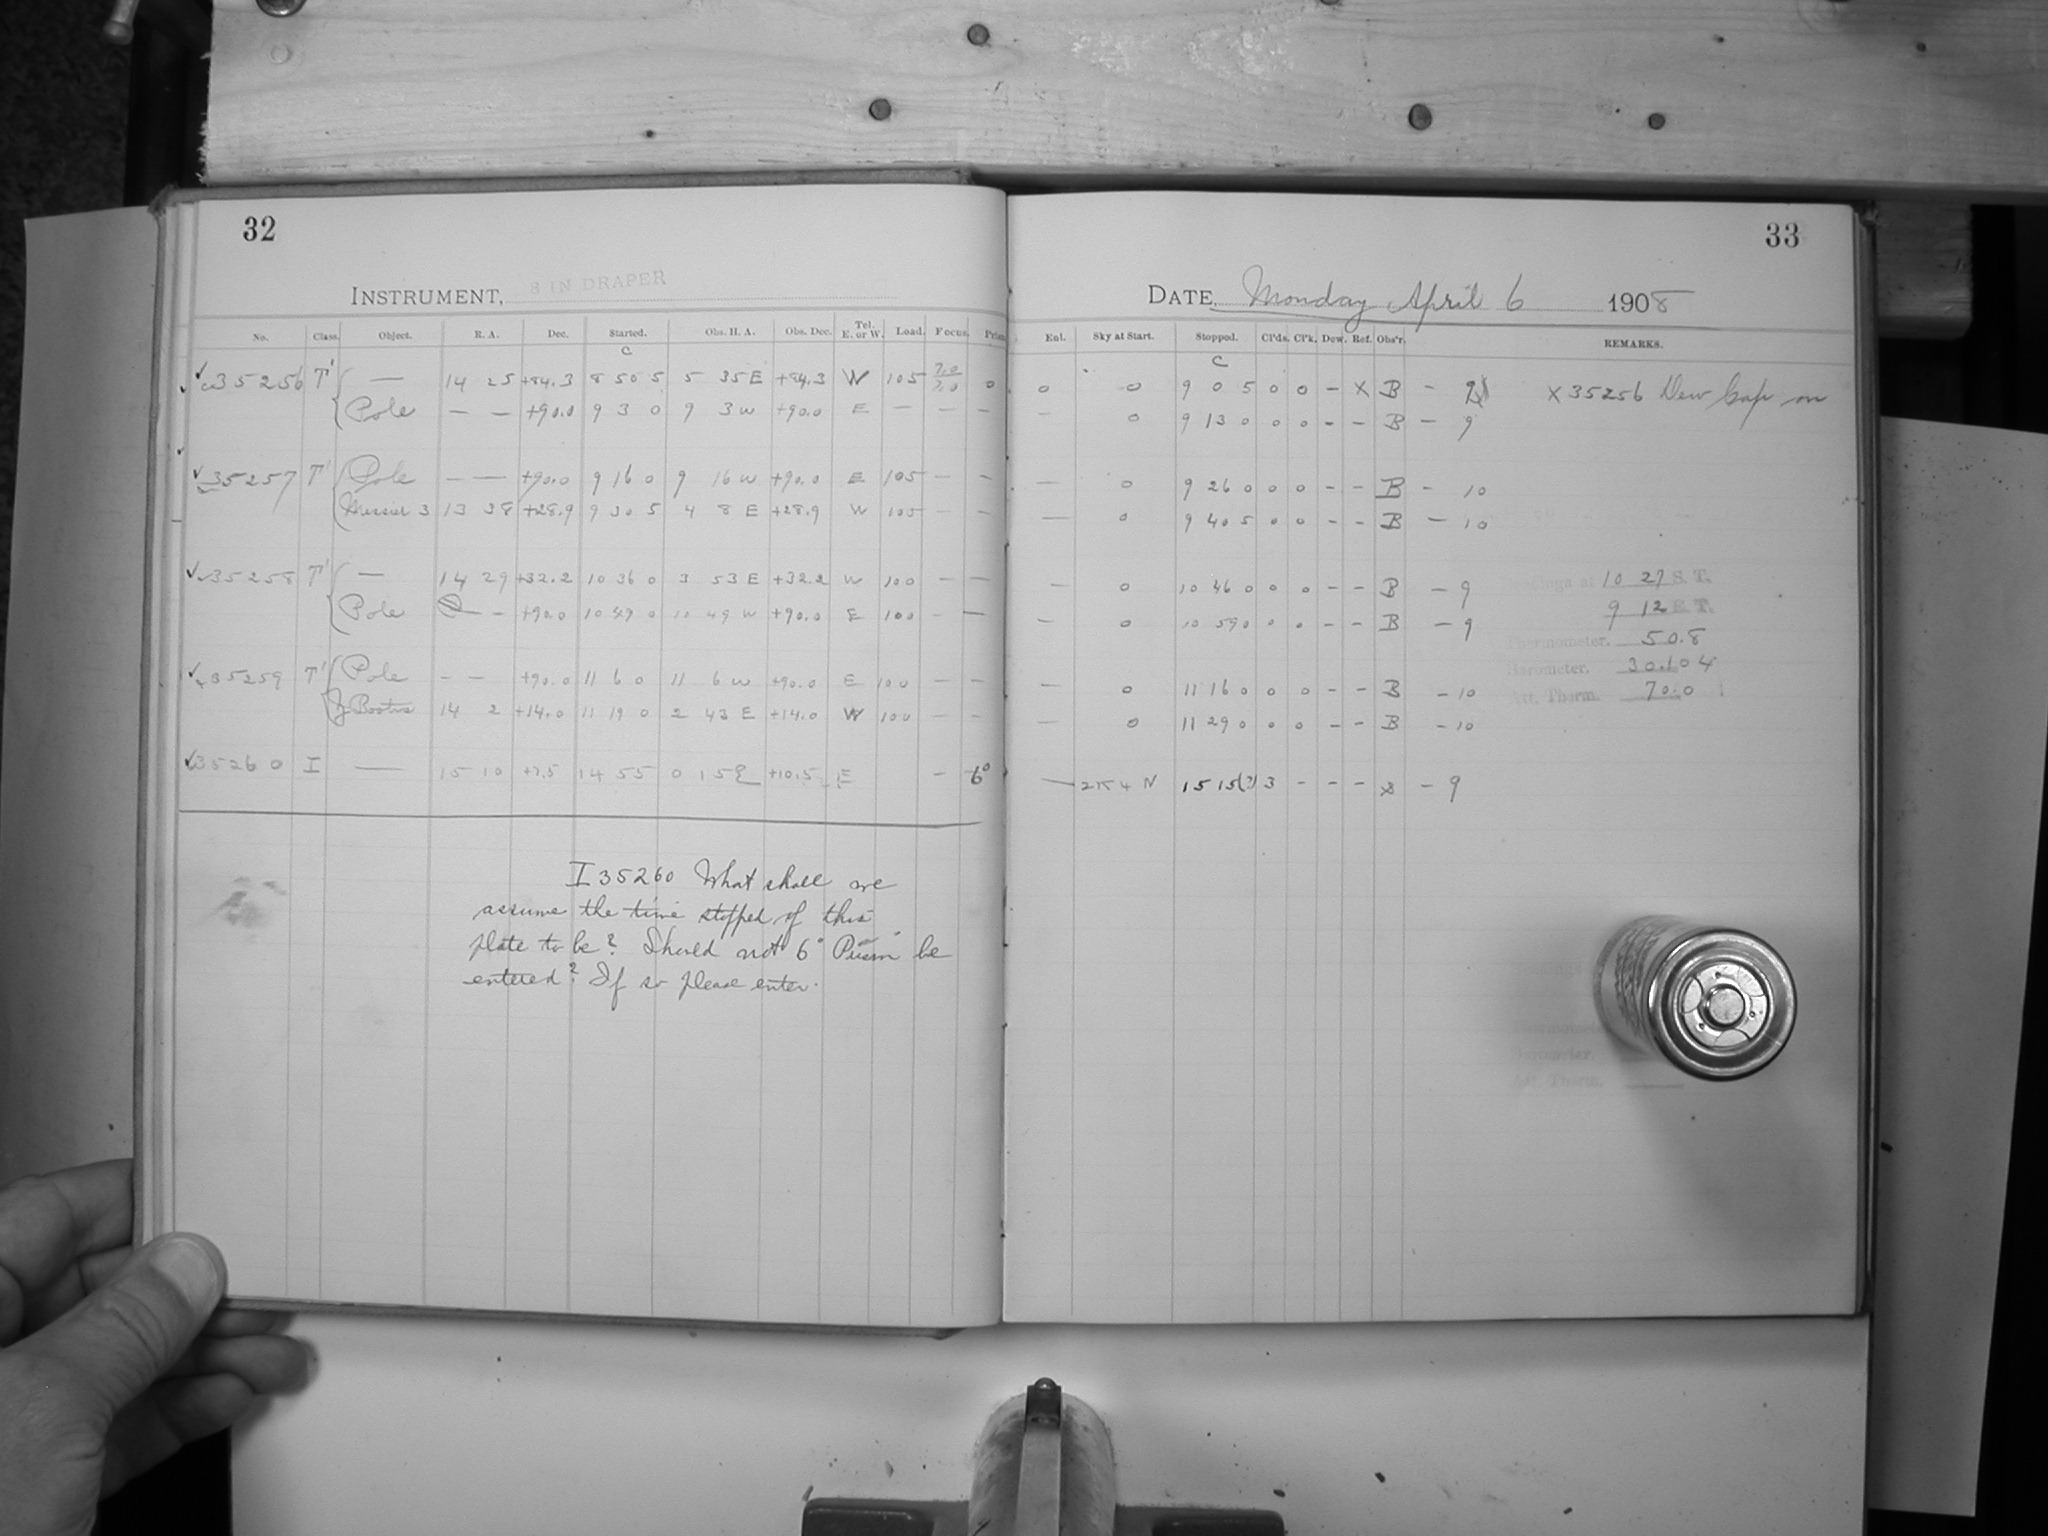 32
INSTRUMENT, 8 IN DRAPER
No. Class. Object. R. A. Dec. Started. Obs. H. A. Obs. Dec. Tel. E. or W. Load. Focus.
C
35256 T' — 14 25 +84.3 8 50 5 5 35 E +84.3 W 105 7.0 7.0 0
Pole — — +90.0 9 3 0 9 3 W +90.0 E — — —
35257 T' Pole — — +90.0 9 16 0 9 16 W +90.0 E 105 — —
Messier 3 13 38 +28.9 9 30 5 4 8 E +28.9 W 105 — —
35258 T' — 14 29 +32.2 10 36 0 3 53 E +32.2 W 100 — —
Pole — +90.0 10 49 0 10 49 W +90.0 E 100 — —
35259 T' Pole — — +90.0 11 6 0 11 6 W +90.0 E 100 — —
Bootis 14 2 +14.0 11 19 0 2 43 E +14.0 W 100 — —
35260 I — 15 10 +7.5 14 55 0 15 E +10.5 E — 6°
I 35260 What shall we
assume the time stopped of this
plate to be? Should not 6° Prism be
entered? If so please enter.
33
DATE, Monday April 6 1908
Ent. Sky at Start. Stopped. Cl'ds. Cl'k. Dew. Ref. Obs'r. REMARKS.
C
0 0 9 0 5 0 0 — X B — 9 X 35256 Dew Cap on
— 0 9 13 0 0 0 — — B — 9
— 0 9 26 0 0 0 — — B — 10
— 0 9 40 5 0 0 — — B — 10
— 0 10 46 0 0 0 — — B — 9
— 0 10 59 0 0 0 — — B — 9
— 0 11 16 0 0 0 — — B — 10
— 0 11 29 0 0 0 — — B — 10
— 15 15(?) 3 — — — — 9
at 10 27 S. T.
9 12 E. T.
Thermometer. 50.8
Barometer. 30.104
Att. Therm. 70.0
Thermometer
Barometer.
Att. Therm.